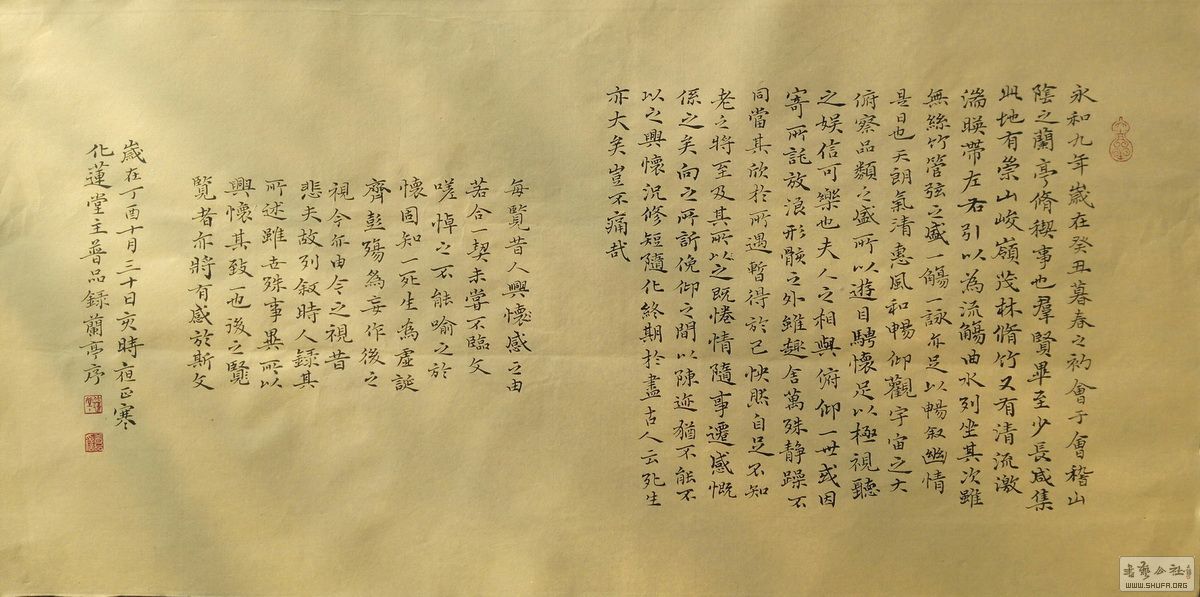 永和九年歲在癸丑暮春之初會于會稽山
陰之蘭亭脩稧事也羣賢畢至少長咸集
此地有崇山峻嶺茂林脩竹又有清流激
湍暎帶左右引以為流觴曲水列坐其次雖
無絲竹管弦之盛一觴一詠亦足以暢叙幽情
是日也天朗氣清惠風和暢仰觀宇宙之大
俯察品類之盛所以遊目騁懷足以極視聽
之娛信可樂也夫人之相與俯仰一世或因
寄所託放浪形骸之外雖趣舍萬殊静躁不
同當其欣於所遇暫得於己怏然自足不知
老之將至及其所以之既惓情隨事遷感慨
係之矣向之所訢俛仰之間以陳迹猶不能不
以之興懷況修短隨化終期於盡古人云死生
亦大矣豈不痛哉
每覽昔人興懷感之由
若合一契未嘗不臨文
嗟悼之不能喻之於
懷固知一死生為虛誕
齊彭殤為妄作後之
視今亦由今之視昔
悲夫故列叙時人錄其
所述雖世殊事異所以
興懷其致一也後之覽
覽者亦將有感於斯文
歲在丁酉十月三十日亥時夜正寒
化蓮堂主普品録蘭亭序
WWW.SHUFA.ORG